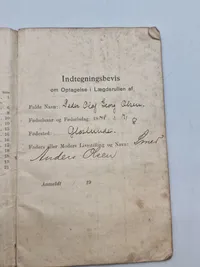 Indtegningsbevis
om Optagelse i Lægdsrullen af
Fulde Navn: Peder Olaf Georg Olsen.
Fødselsaar og Fødselsdag: 18
Fødested:
Faders eller Moders Livsstilling og Navn: Smed
Anders Olsen
Anmeldt 19